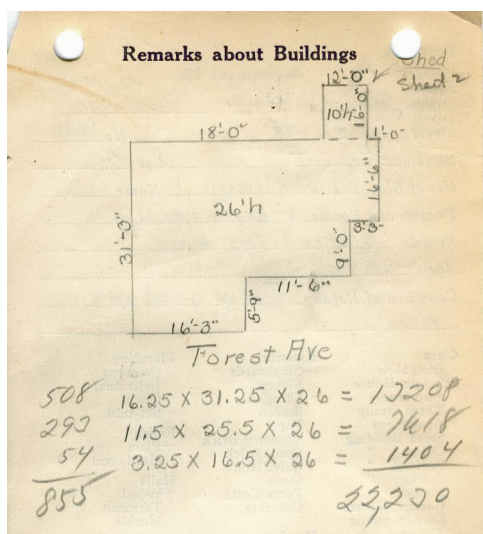 Remarks about Buildings
Shed
Shed 2
12'-0"
10'h
16'-0"
18'-0"
1'-0"
26'h
16'-6"
31'-3"
3'3"
9'-0"
11'-6"
5'-9"
16'-3"
Forest Ave
508 16.25 X 31.25 X 26 = 13208
293 11.5 X 25.5 X 26 = 7618
54 3.25 X 16.5 X 26 = 1404
855 22,230